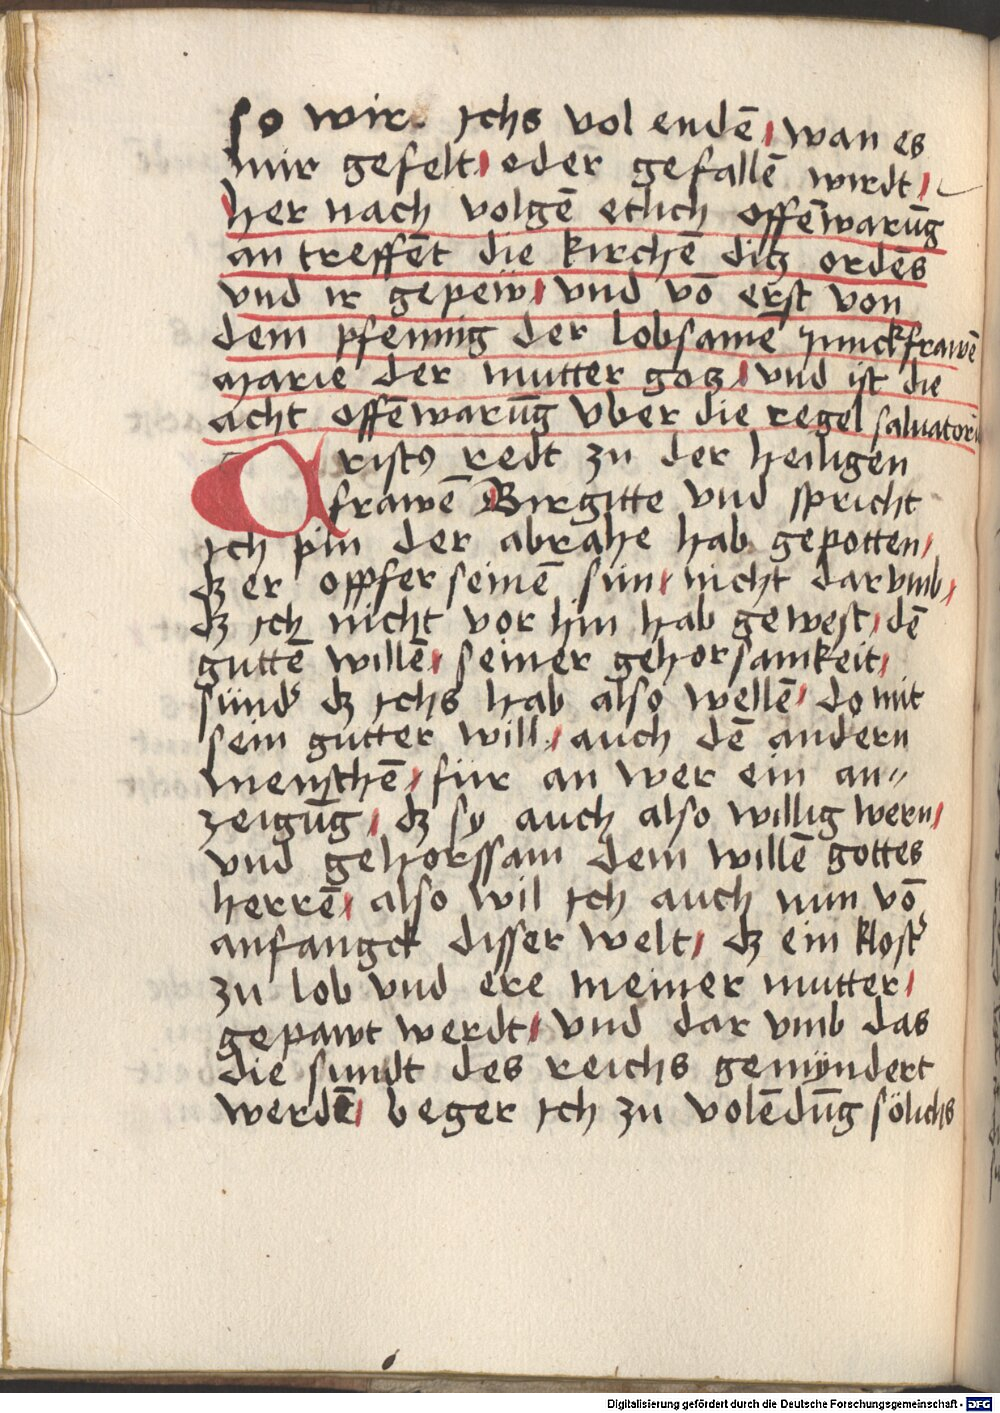 so wir ichs vol endē / wan es
mir gefelt / eder gefallē wirdt /
her nach volgē etlich offēwarūg
an treffēt die kirchē ditz ordēs
vnd ir gepew / vnd vō erst von
dem pfennig der lobsamē Junckfrawē
marie der mutter gotz / vnd ist die
acht offēwarūg vber die regel saluatori
Cristꝰ redt zu der heiligen
frawē Birgitte vnd spricht
ich pin der abrahe hab gepotten /
dz er opffer seinē sün / nicht dar vmb /
dz ich nicht vor hin hab gewest / dē
guttē willē / seiner gehorsamkeit /
sünd' dz ichs hab also wellē / do mit
sein gutter will / auch dē andern
menschē / für an wer ein an=
zeigūg / dz sy auch also willig wern /
vnd gehorssam dem willē gottes
herrē / also wil ich auch nun vō
anfangck disser welt / dz ein klost'
zu lob vnd ere meiner mutter /
gepawt werdt / vnd dar vmb das
die sundt des reichs gemÿndert
werdē / beger ich zu volēdūg sölichs
Digitalisierung gefördert durch die Deutsche Forschungsgemeinschaft - DFG